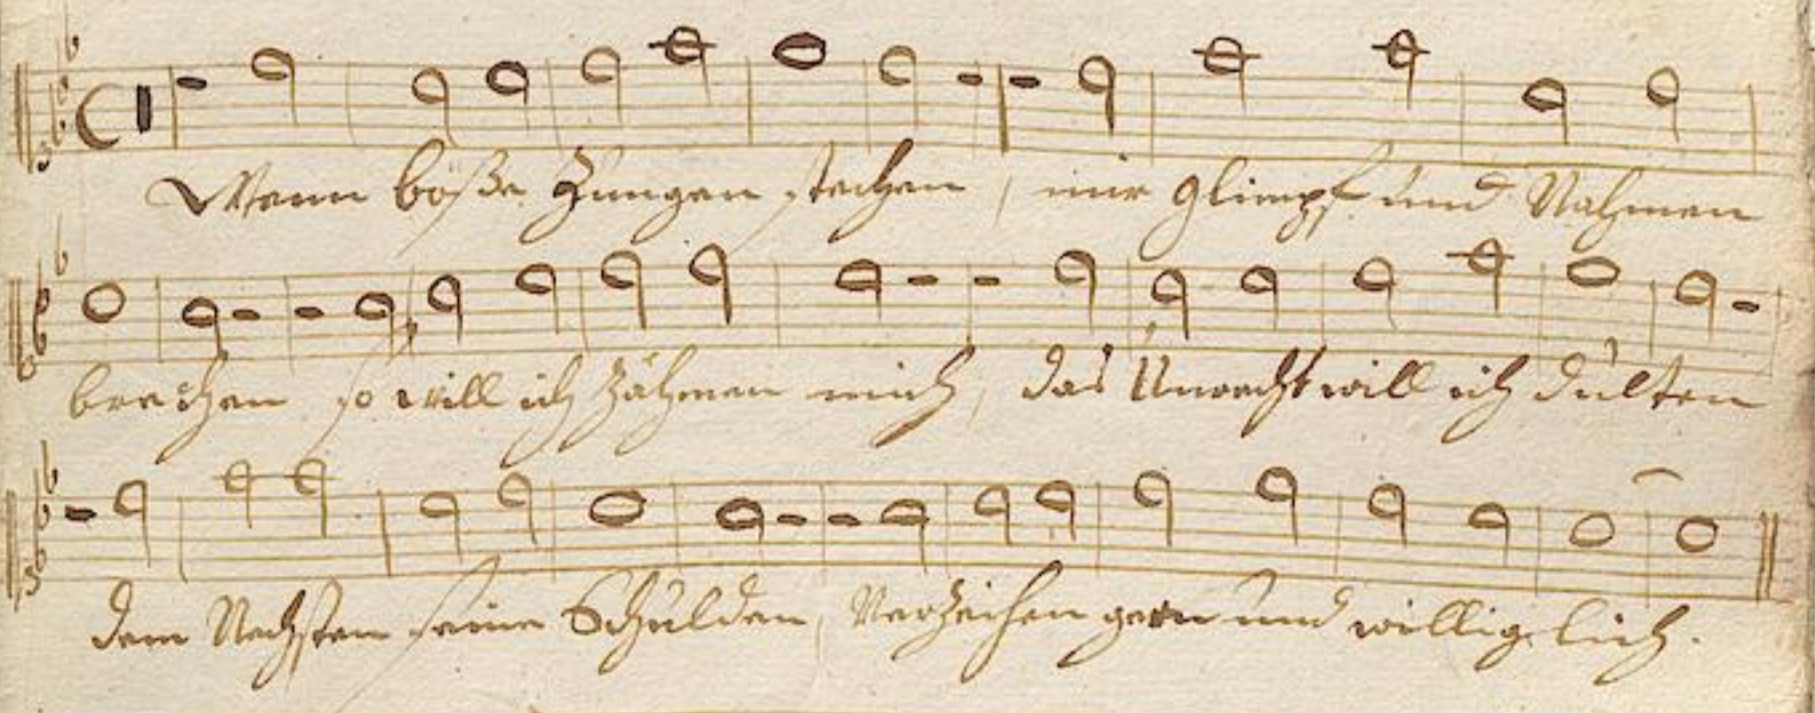 Wenn böße Zungen stechen, mir Glimpf und Nahmen
brechen so will ich zähmen mich, das Unrecht will ich dulten
dem Nechsten seine Schulden, Verzeihen gern und williglich.